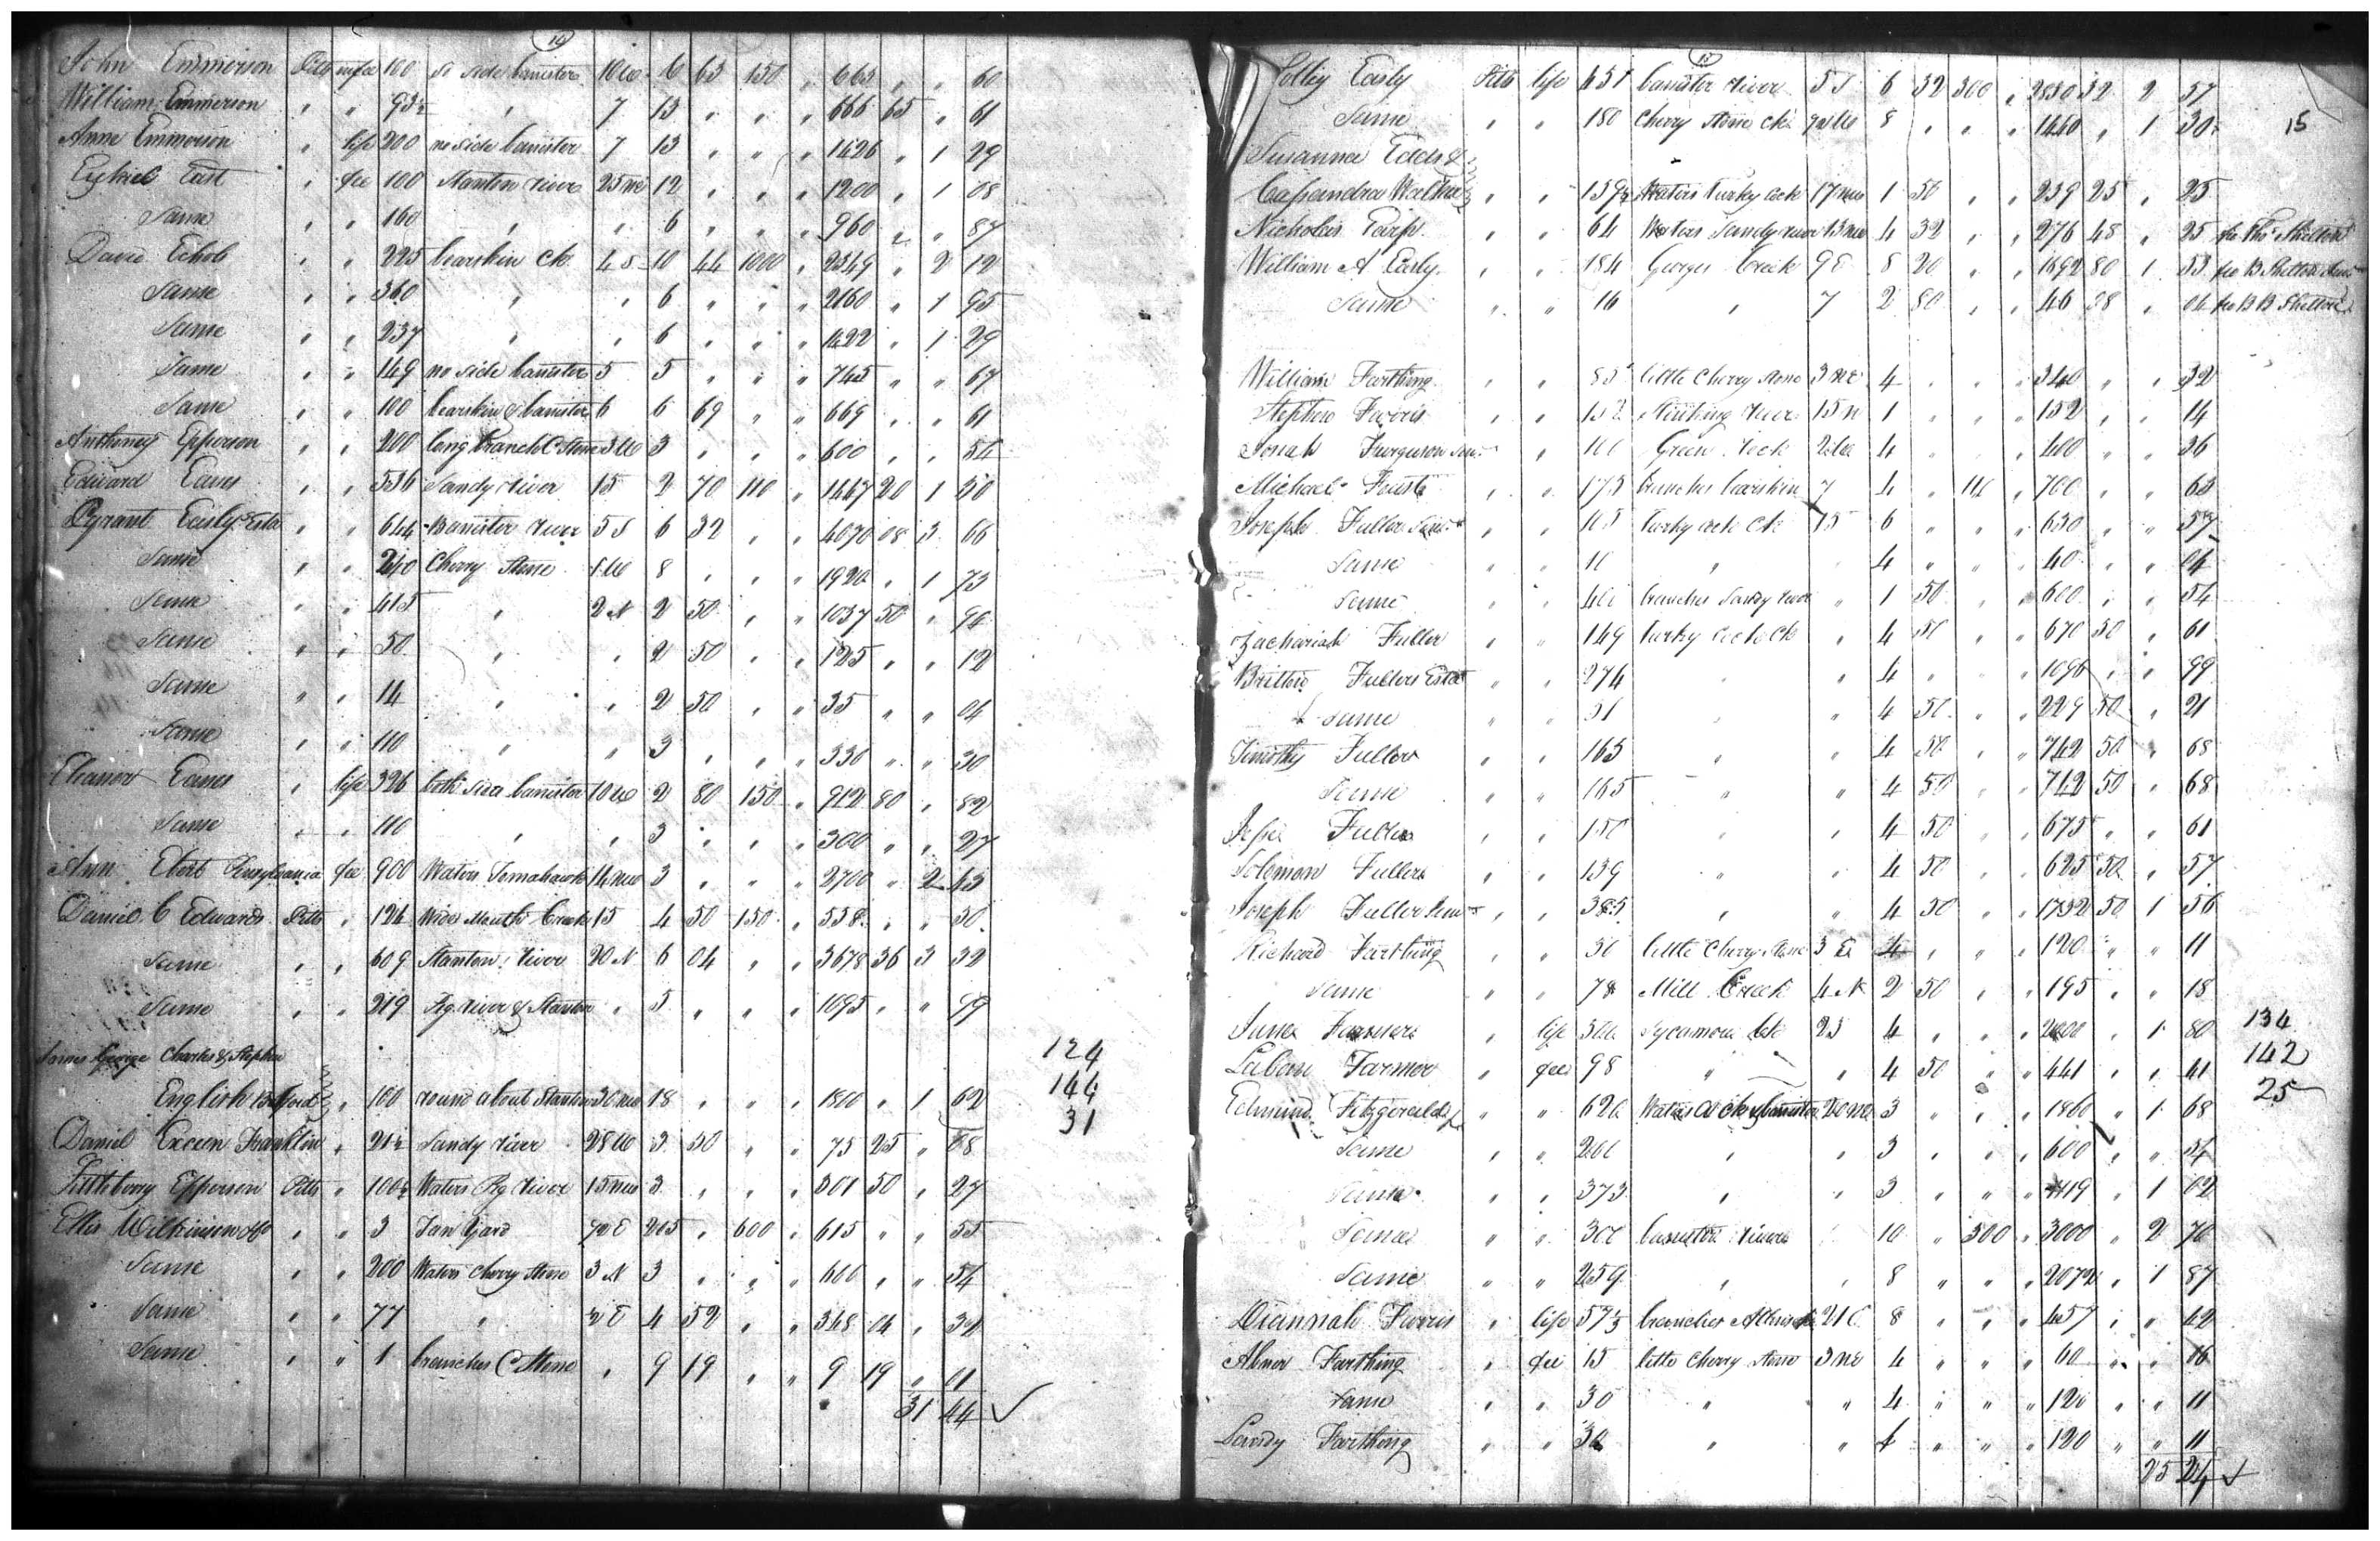 14
John Emmerson Pitts in fee 100 so side banister 10 W 6 63 150 " 663 " " 60
William Emmerson " " 93½ " 7 13 " " " 666 65 " 61
Anne Emmerson " life 200 no side banister 7 13 " " " 1426 " 1 29
Ezekiel East " fee 100 Stanton river 25 NE 12 " " " 1200 " 1 08
Same " " 160 " " 6 " " " 960 " " 87
David Echols " " 225 bearskin Ck 4 S 10 44 1000 " 2349 " 2 12
Same " " 360 " " 6 " " " 2160 " 1 95
Same " " 237 " " 6 " " " 1422 " 1 29
Same " " 149 no side banister 5 5 " " " 745 " " 67
Same " " 100 bearskin & banister 6 6 69 " " 669 " " 61
Anthoney Epperson " " 200 long branch C Stone 3 W 3 " " " 600 " " 54
Edward Eanes " " 536 Sandy river 15 2 70 110 " 1447 20 1 30
Pyrant Easly Esta " " 644 Banister river 5 S 6 32 " " 4070 08 3 66
Same " " 240 Cherry Stone 1 W 8 " " " 1920 " 1 73
Same " " 415 " 2 N 2 50 " " 1037 50 " 94
Same " " 50 " " 2 50 " " 125 " " 12
Same " " 14 " " 2 50 " " 35 " " 04
Same " " 110 " " 3 " " " 330 " " 30
Eleanor Eanes " life 326 both sides banister 10 W 2 80 150 " 912 80 " 82
Same " " 110 " " 3 " " " 300 " " 27
Ann Ebert Pensylvania fee 900 Waters Tomahawk 14 NW 3 " " " 2700 " 2 43
Daniel C Edwards Pitts " 124 Wide Mouth Creek 15 4 50 150 " 558 " " 50
Same " " 609 Stanton river 20 N 6 04 " " 3678 36 3 32
Same " " 219 Pig river & Stanton " 5 " " " 1095 " " 99
James George Charles & Stephen
English Bedford " 100 round about Stanton 30 NW 18 " " " 1800 " 1 62
Daniel Franklin " 21½ Sandy river 28 W 3 50 " " 75 25 " 08
Littleberry Epperson Pitts " 100½ Waters Pig river 15 NW 3 " " " 301 50 " 27
Ellis Wilkinson & Co " " 3 Tan Yard ½ E 205 " 600 " 615 " " 55
Same " " 200 Waters Cherry Stone 3 N 3 " " " 600 " " 54
Same " " 77 " 2 E 4 52 " " 348 04 " 32
Same " " 1 branches C Stone " 9 19 " " 9 19 " 01
31 44 ✓
124
144
31
15
Polley Easly Pitts life 451 banister river 5 S 6 32 300 " 2850 32 2 57
Same " " 180 Cherry Stone Ck ½ W 8 " " " 1440 " 1 30 15
Susanna Edds &
Cassandra Walker " " 159½ Waters turky Cock 17 NW 1 50 " " 239 25 " 25
Nicholas Earp " " 64 Waters Sandy river 13 NW 4 32 " " 276 48 " 25 fr Thos Shelton
William A Easly " " 184 Georges Creek 9 E 8 20 " " 1692 80 1 53
Same " " 16 " 7 2 80 " " 46 28 " 04 fr B B Shelton
William Farthing " " 85 little Cherry stone 3 NE 4 " " " 340 " " 32
Stephen Farris " " 152 Stinking river 15 N 1 " " " 152 " " 14
Jonah Furguson " " 100 Green rock 4 " " " 400 " " 36
Michael Foust " " 175 branches bearskin 7 4 " 100 " 700 " " 63
Joseph Fuller " " 105 turky cock Ck 15 6 " " " 630 " " 57
Same " " 10 " " 4 " " " 40 " " 04
Same " " 400 branches Sandy river " 1 50 " " 600 " " 54
Zachariah Fuller " " 149 turky cock Ck " 4 50 " " 670 50 " 61
Britton Fullers Estate " " 274 " " 4 " " " 1096 " " 99
Same " " 51 " " 4 50 " " 229 50 " 21
Timothy Fuller " " 165 " " 4 50 " " 742 50 " 68
Same " " 165 " " 4 50 " " 742 50 " 68
Jesse Fuller " " 150 " " 4 50 " " 675 " " 61
Soloman Fuller " " 139 " " 4 50 " " 625 50 " 57
Joseph Fuller " " 385 " " 4 50 " " 1732 50 1 56
Richard Farthing " " 30 little Cherry Stone 3 E 4 " " " 120 " " 11
Same " " 78 Mill Creek 4 N 2 50 " " 195 " " 18
James Farmer " life 500 Sycamore Ck 25 4 " " " 2000 " 1 80
Laban Farmer " fee 98 " " 4 50 " " 441 " " 41
Edmund Fitzgerald " " 620 Waters banister 20 NE 3 " " " 1860 " 1 68
Same " " 200 " " 3 " " " 600 " " 54
Same " " 373 " " 3 " " " 1119 " 1 02
Same " " 300 banister river 10 " 500 " 3000 " 2 70
Same " " 259 " " 8 " " " 2072 " 1 87
Diannah Farris " life 57 branches 21 E 8 " " " 457 " " 42
Abner Farthing " fee 15 little Cherry stone 3 NE 4 " " " 60 " " 06
Same " " 30 " " 4 " " " 120 " " 11
Landy Farthing " " 30 " " 4 " " " 120 " " 11
25 24 ✓
134
142
25